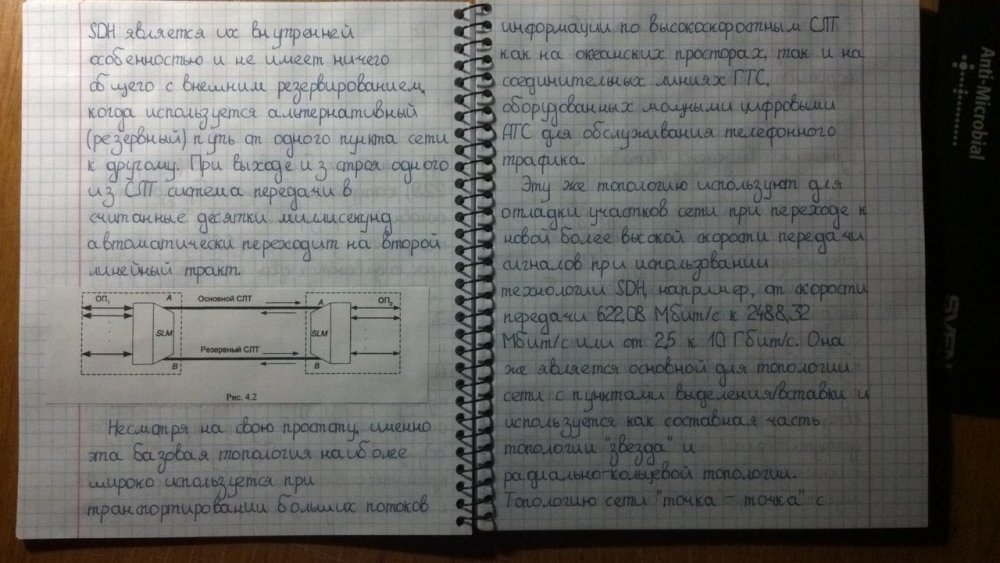 SDH является их внутренней
особенностью и не имеет ничего
общего с внешним резервированием,
когда используется альтернативный
(резервный) путь от одного пункта сети
к другому. При выходе из строя одного
из СЛТ система передачи в
считанные десятки миллисекунд
автоматически переходит на второй
линейный тракт.
ОП₁ A Основной СЛТ A ОП₂
SLM SLM
B Резервный СЛТ B
Рис. 4.2
Несмотря на свою простоту, именно
эта базовая топология наиболее
широко используется при
транспортировании больших потоков
информации по высокоскоростным СЛТ
как на океанских просторах, так и на
соединительных линиях ГТС,
оборудованных мощными цифровыми
АТС для обслуживания телефонного
трафика.
Эту же топологию используют для
отладки участков сети при переходе к
новой более высокой скорости передачи
сигналов при использовании
технологии SDH, например, от скорости
передачи 622,08 Мбит/с к 2488,32
Мбит/с или от 2,5 к 10 Гбит/с. Она
же является основной для топологии
сети с пунктами выделения/вставки и
используется как составная часть
топологии "звезда" и
радиально-кольцевой топологии.
Топологию сети "точка - точка" с
Anti-Microbial